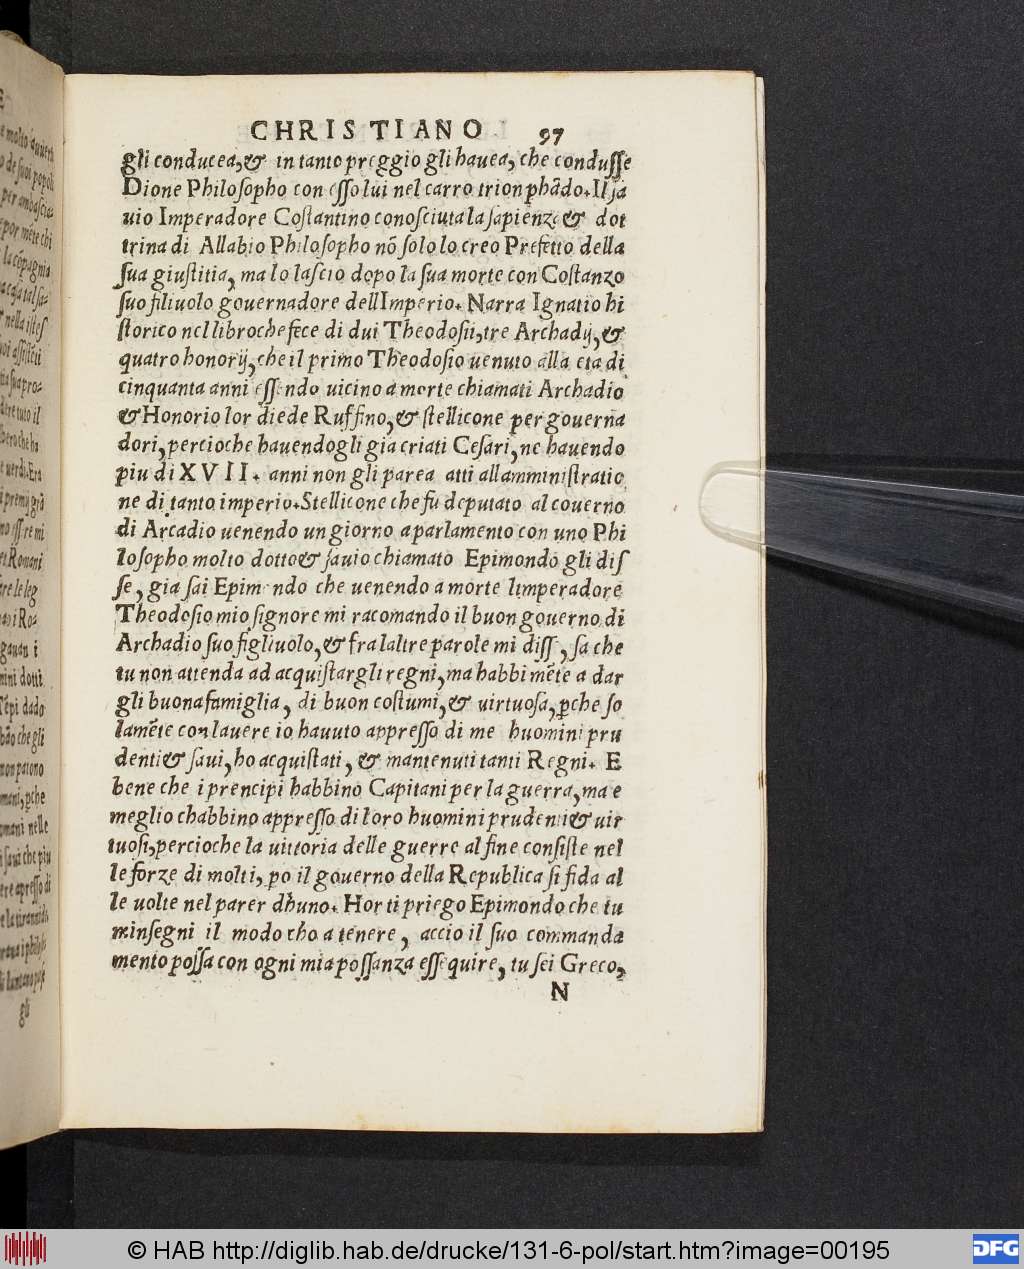 CHRISTIANO 97
gli conducea, & in tanto preggio gli hauea, che condusse
Dione Philosopho con esso lui nel carro trionphãdo. Il sa
uio Imperadore Costantino conosciuta la sapienza & dot
trina di Allabio Philosopho nõ solo lo creo Prefetto della
sua giustitia, ma lo lascio dopo la sua morte con Costanzo
suo filiuolo gouernadore dell Imperio. Narra Ignatio hi
storico nel libro che fece di dui Theodosii, tre Archadij, &
quatro honorij, che il primo Theodosio uenuto alla eta di
cinquanta anni essendo uicino a morte chiamati Archadio
& Honorio lor diede Ruffino, & stellicone per gouerna
dori, percioche hauendogli gia criati Cesari, ne hauendo
piu di XVII. anni non gli parea atti all amministratio
ne di tanto imperio. Stellicone che fu deputato al couerno
di Arcadio uenendo un giorno a parlamento con uno Phi
losopho molto dotto & sauio chiamato Epimondo gli dis
se, gia sai Epimondo che uenendo a morte limperadore
Theodosio mio signore mi racomando il buon gouerno di
Archadio suo figliuolo, & fra laltre parole mi diss, fa che
tu non attenda ad acquistargli regni, ma habbi mẽte a dar
gli buona famiglia, di buon costumi, & uirtuosa, ꝑche so
lamẽte con lauere io hauuto appresso di me huomini pru
denti & saui, ho acquistati, & mantenuti tanti Regni. E
bene che i prencipi habbino Capitani per la guerra, ma e
meglio chabbino appresso di loro huomini prudenti & uir
tuosi, percioche la uittoria delle guerre al fine consiste nel
le forze di molti, po il gouerno della Republica si fida al
le uolte nel parer dhuno. Hor ti priego Epimondo che tu
minsegni il modo cho a tenere, accio il suo commanda
mento possa con ogni mia possanza essequire, tu sei Greco,
N
gli
© HAB http://diglib.hab.de/drucke/131-6-pol/start.htm?image=00195
DFG